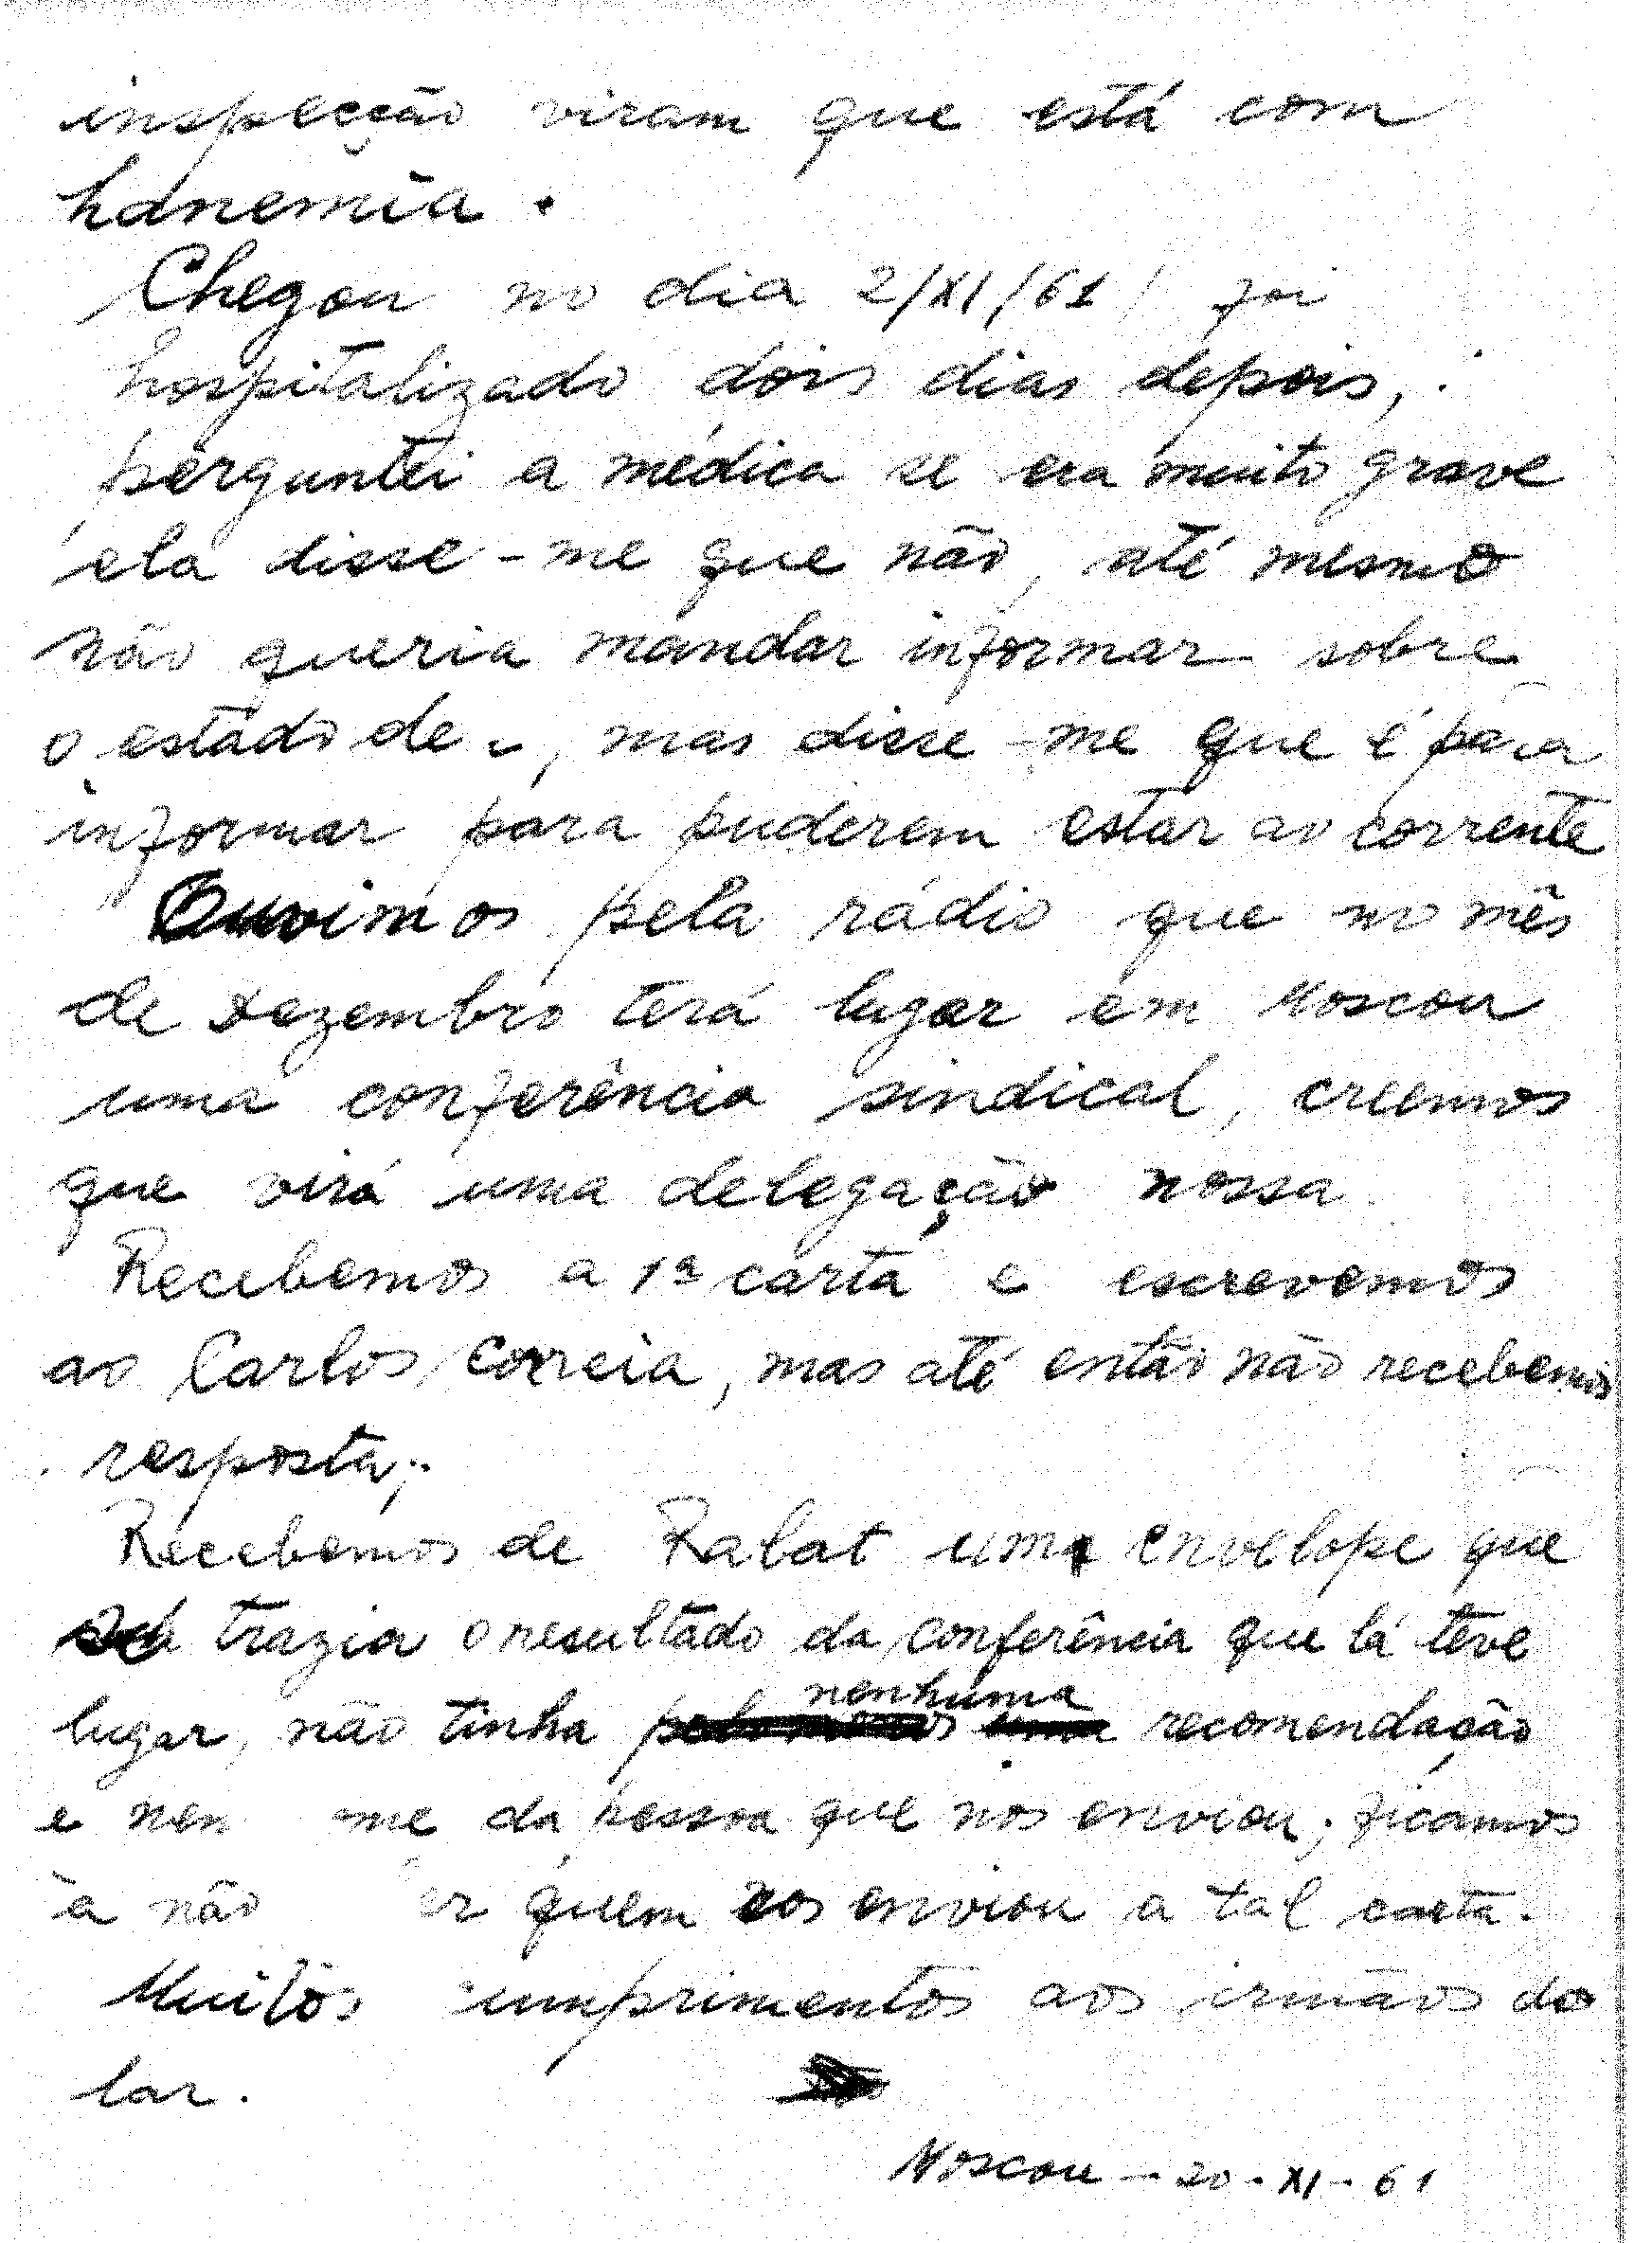 inspecção viram que está com
hanemia.
Chegou no dia 2/XI/61, foi
hospitalizado dois dias depois,
perguntei a médica se era muito grave
ela disse-me que não, até mesmo
não queria mandar informar sobre
o estado de, mas disse-me que é para
informar para puderem estar ao corrente
Ouvimos pela rádio que no mês
de Dezembro terá lugar em Moscou
uma conferência sindical, creemos
que virá uma delegação nossa
Recebemos a 1ª carta e escrevemos
ao Carlos Correia, mas até então não recebemos
resposta;
Recebemos de Rabat um envelope que
trazia o resultado da conferência que lá teve
nenhuma
lugar, não tinha recomendação
e nen me da pessoa que nos enviou; ficamos
à não er quem nos enviou a tal carta.
Muitos umprimentos aos irmãos do
lar.
Moscou - 20-XI-61